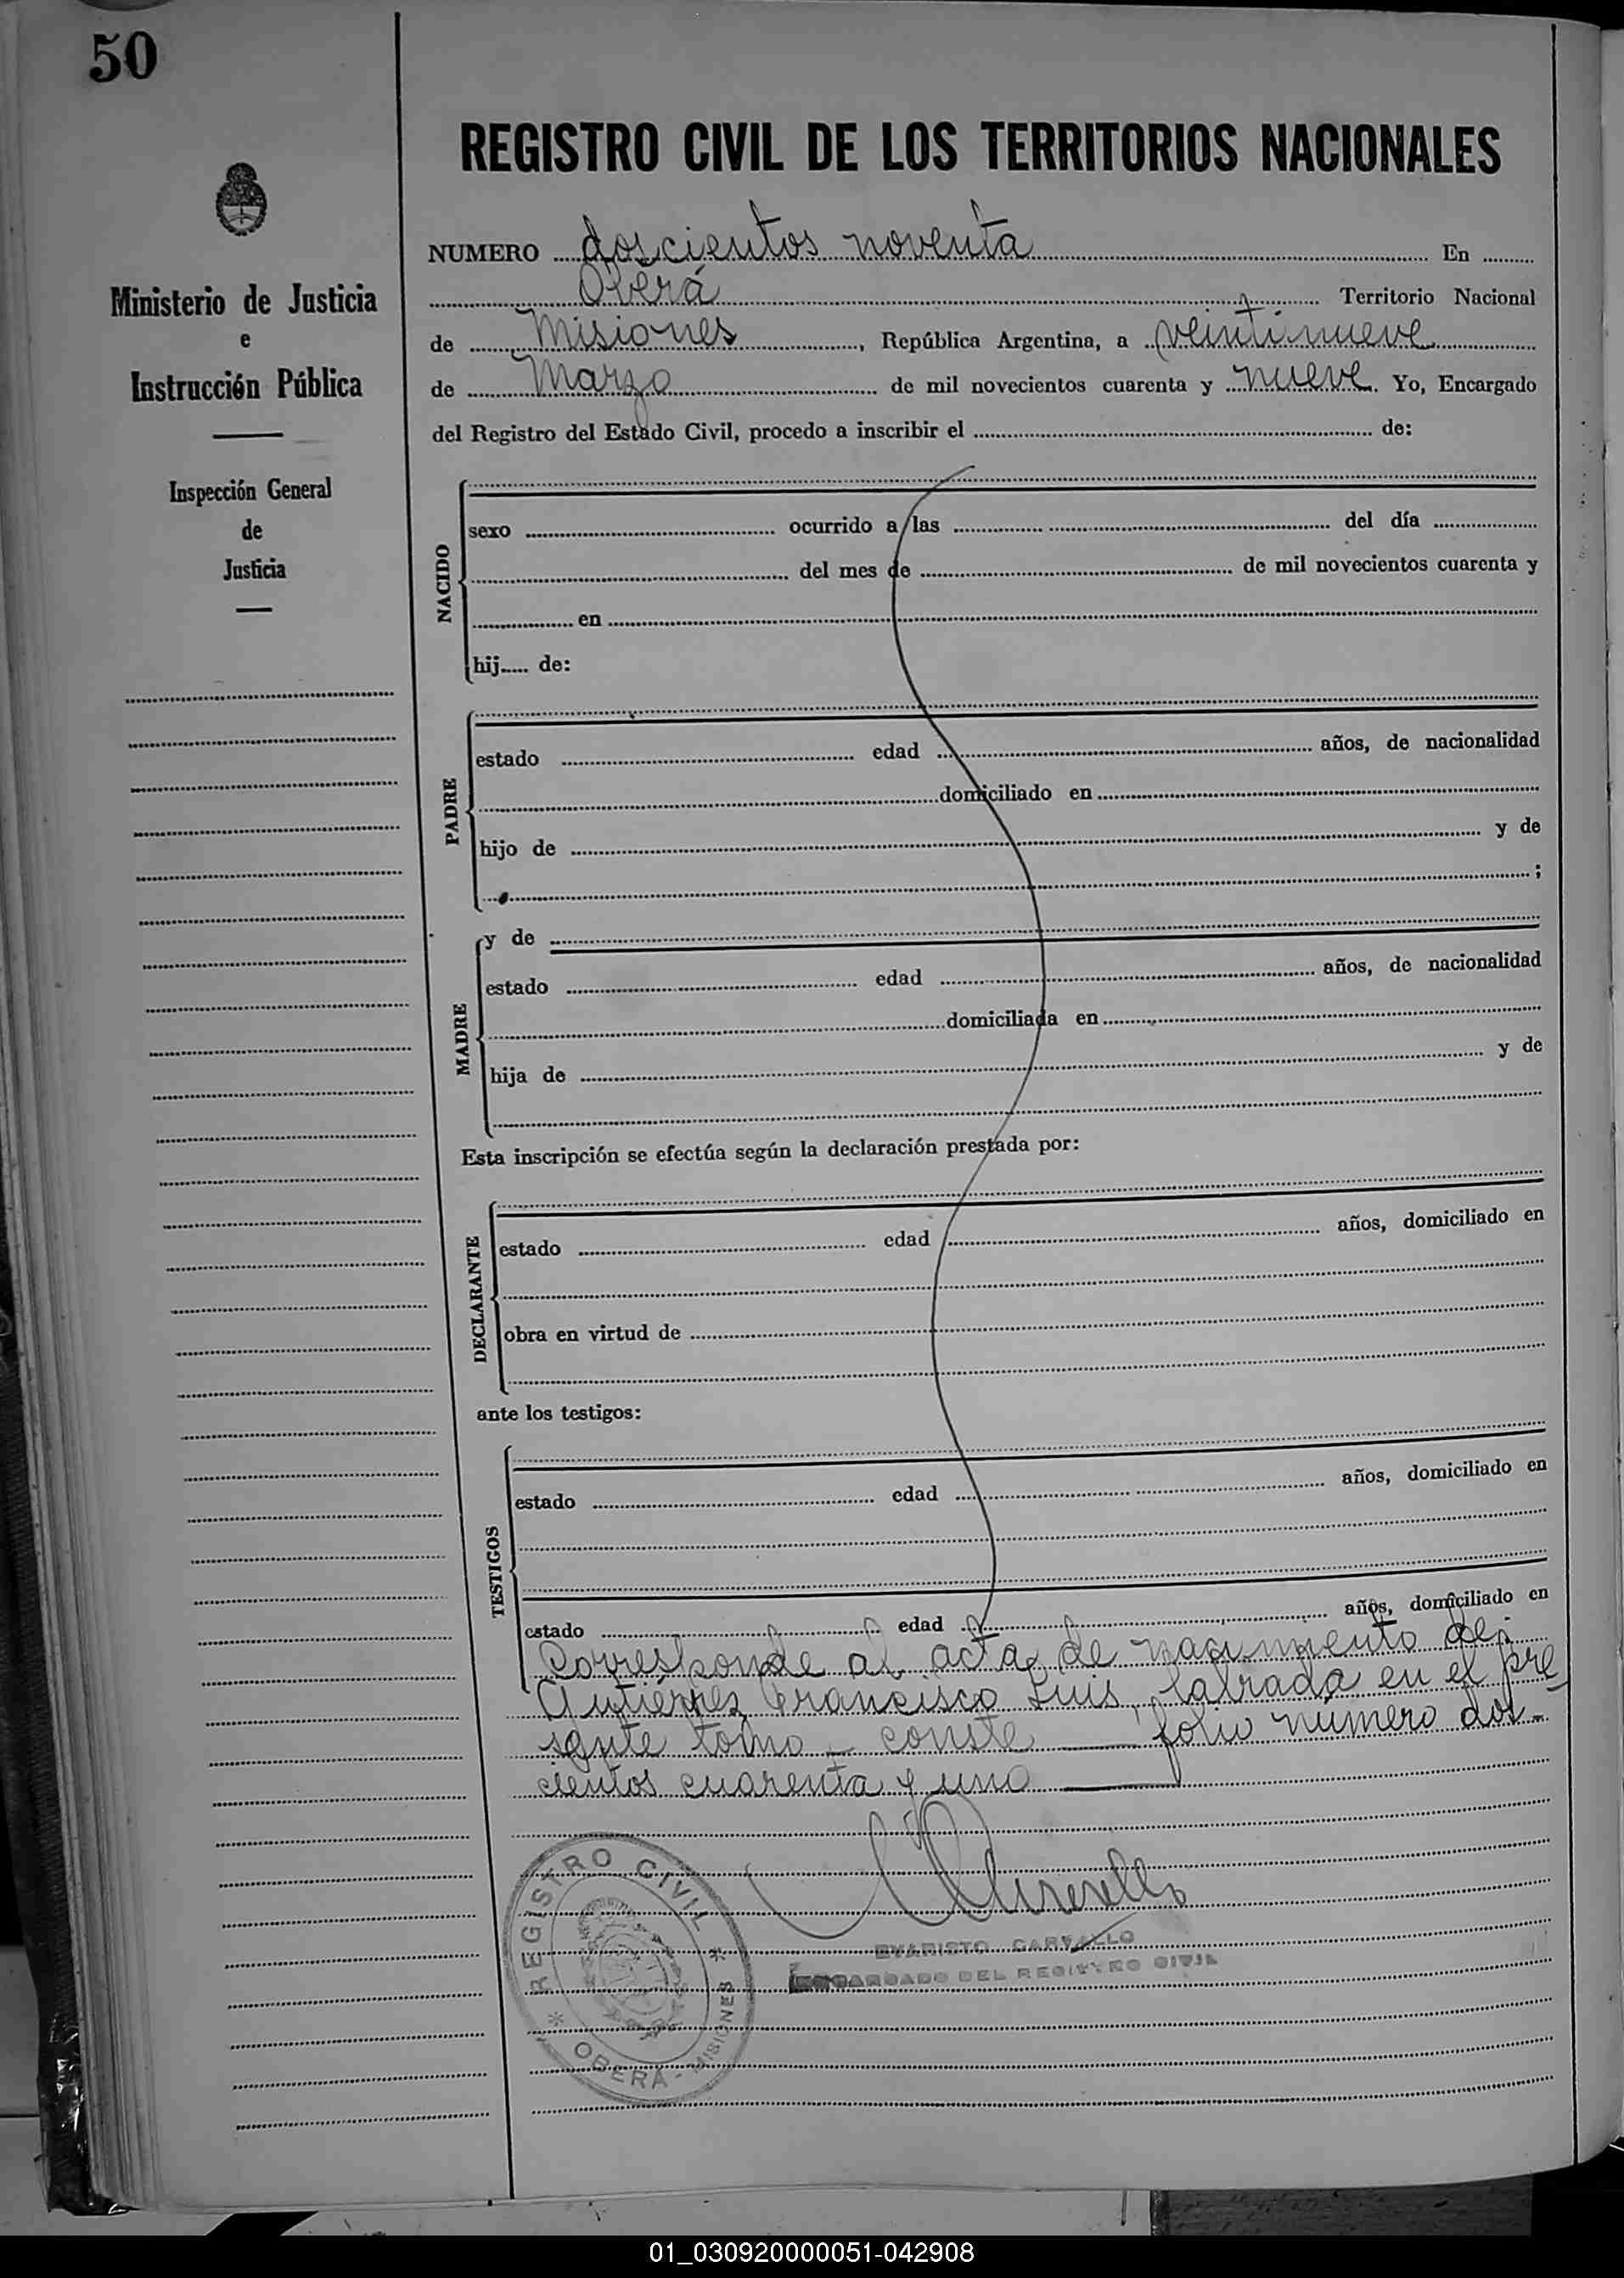 50
Ministerio de Justicia
e
Instrucción Pública
Inspección General
de
Justicia
REGISTRO CIVIL DE LOS TERRITORIOS NACIONALES
NUMERO doscientos noventa En
Oberá Territorio Nacional
de Misiones, República Argentina, a veintinueve
de Marzo de mil novecientos cuarenta y nueve. Yo, Encargado
del Registro del Estado Civil, procedo a inscribir el de:
NACIDO
sexo ocurrido a las del día
del mes de de mil novecientos cuarenta y
en
hij..... de:
PADRE
estado edad años, de nacionalidad
domiciliado en
hijo de y de
;
MADRE
y de
estado edad años, de nacionalidad
domiciliada en
hija de y de
Esta inscripción se efectúa según la declaración prestada por:
DECLARANTE
estado edad años, domiciliado en
obra en virtud de
ante los testigos:
TESTIGOS
estado edad años, domiciliado en
estado edad años, domiciliado en
Corresponde al acta de nacimiento de
Gutiérrez Francisco Luis, labrada en el pre
sente tomo - conste — folio número dos-
cientos cuarenta y uno —
REGISTRO CIVIL
OBERÁ - MISIONES
EVARISTO CARVALLO
ENCARGADO DEL REGISTRO CIVIL
01_030920000051-042908